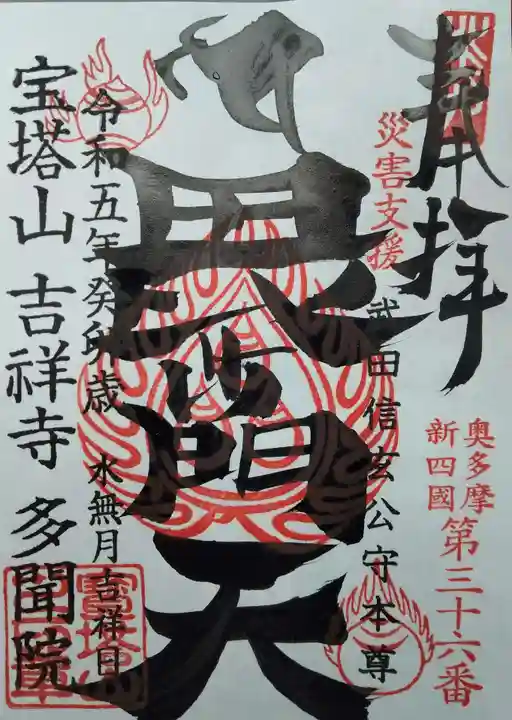 奉拝
災害支援
武田信玄公守本尊
奥多摩
新四國
第三十六番
毘沙門天
令和五年癸卯歳 水無月吉祥日
宝塔山 吉祥寺 多聞院